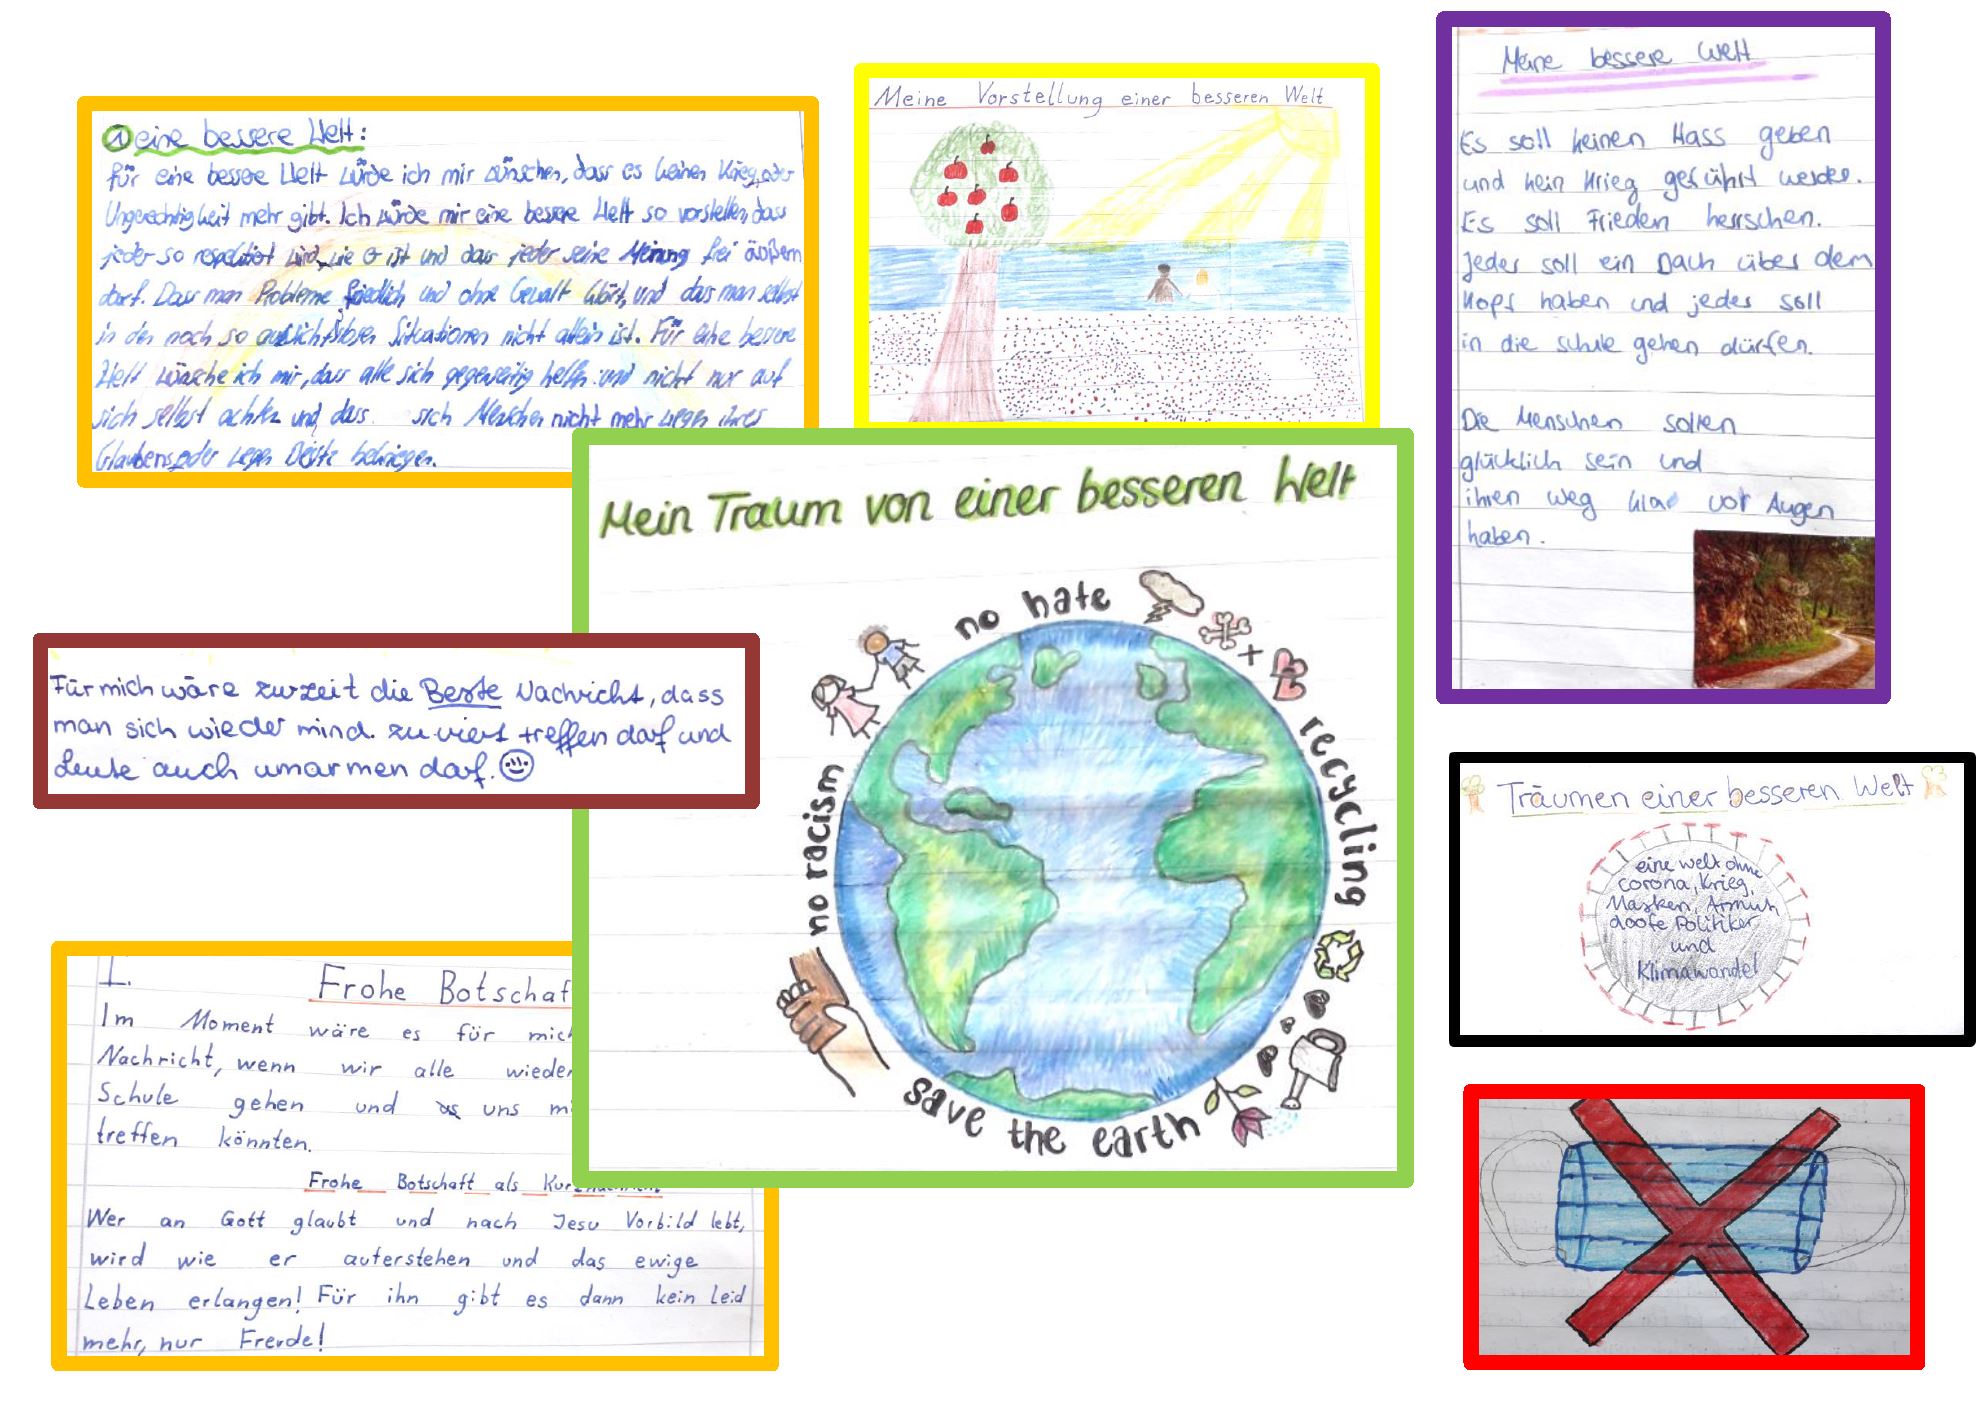 ① eine bessere Welt:
für eine bessere Welt würde ich mir wünschen, dass es keinen Krieg oder
Ungerechtigkeit mehr gibt. Ich würde mir eine bessere Welt so vorstellen, dass
jeder so respektiert wird, wie er ist und dass jeder seine Meinung frei äußern
darf. Dass man Probleme friedlich und ohne Gewalt klärt, und das man selbst
in den noch so aussichtslosen Situationen nicht allein ist. Für eine bessere
Welt wünsche ich mir, dass alle sich gegenseitig helfen und nicht nur auf
sich selbst achten und dass sich Menschen nicht mehr wegen ihres
Glaubens oder wegen bekriegen.
Meine Vorstellung einer besseren Welt
Meine bessere Welt
Es soll keinen Hass geben
und kein Krieg geführt werden.
Es soll Frieden herrschen.
Jeder soll ein Dach über dem
Kopf haben und jedes soll
in die Schule gehen dürfen.
Die Menschen sollen
glücklich sein und
ihren Weg klar vor Augen
haben.
Mein Traum von einer besseren Welt
no hate
recycling
no racism
save the earth
Für mich wäre zurzeit die Beste Nachricht, dass
man sich wieder mind. zu viert treffen darf und
Leute auch umarmen darf.
Träumen einer besseren Welt
eine welt ohne
Corona, Krieg,
Masken, Armut,
doofe Politiker
und
Klimawandel
1.
Frohe Botschaf
Im Moment wäre es für mich
Nachricht, wenn wir alle wieder
Schule gehen und uns mi
treffen könnten.
Frohe Botschaft als Kurznachricht
Wer an Gott glaubt und nach Jesu Vorbild lebt,
wird wie er auferstehen und das ewige
Leben erlangen! Für ihn gibt es dann kein Leid
mehr, nur Freude!